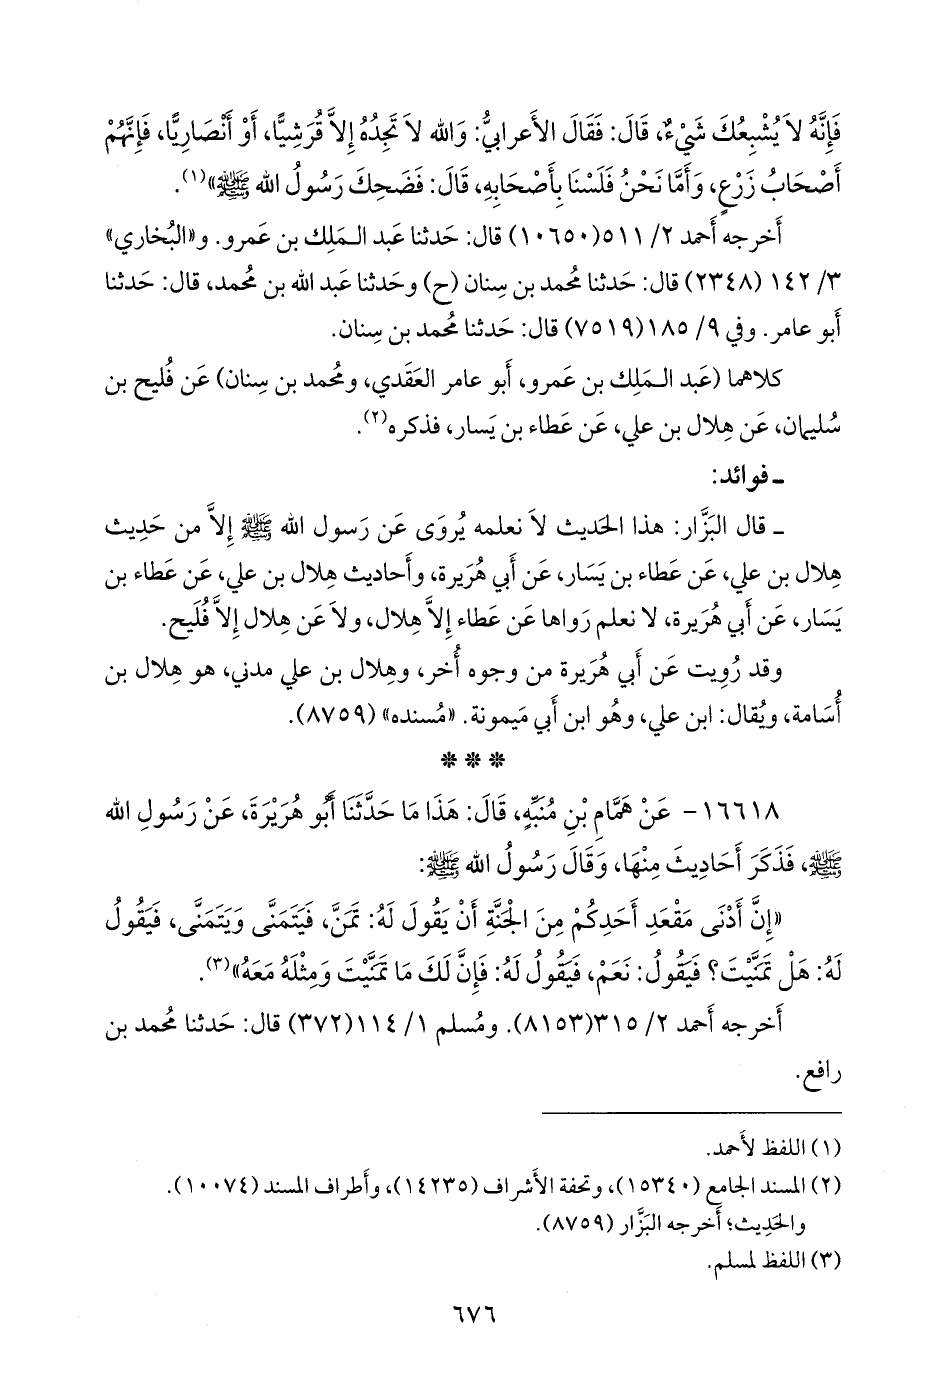 فَإِنَّهُ لاَ يُشْبِعُكَ شَيْءٌ، قَالَ: فَقَالَ الأَعرابيُّ: وَالله لاَ تَجِدُهُ إِلاَّ قُرَشِيًّا، أَوْ أَنْصَارِيًّا، فَإِنَّهُمْ
أَصْحَابُ زَرْعٍ، وَأَمَّا نَحْنُ فَلَسْنَا بِأَصْحَابِهِ، قَالَ: فَضَحِكَ رَسُولُ الله ﷺ»(١).
أَخرجه أَحمد ٢/ ٥١١(١٠٦٥٠) قال: حَدثنا عَبد الـمَلِك بن عَمرو. و«البُخاري»
٣/ ١٤٢ (٢٣٤٨) قال: حَدثنا مُحمد بن سِنان (ح) وحَدثنا عَبد الله بن مُحمد، قال: حَدثنا
أَبو عامر. وفي ٩/ ١٨٥(٧٥١٩) قال: حَدثنا مُحمد بن سِنان.
كلاهما (عَبد الـمَلِك بن عَمرو، أَبو عامر العَقَدي، ومُحمد بن سِنان) عَن فُليح بن
سُليمان، عَن هِلال بن علي، عَن عَطاء بن يَسار، فذكره(٢).
ـ فوائد:
ـ قال البَزَّار: هذا الحَديث لاَ نعلمه يُروَى عَن رَسول الله ﷺ إِلاَّ من حَدِيث
هِلال بن علي، عَن عَطاء بن يَسَار، عَن أَبي هُرَيرة، وأَحاديث هِلال بن علي، عَن عَطاء بن
يَسَار، عَن أَبي هُرَيرة، لا نعلم رَواها عَن عَطاء إِلاَّ هِلال، ولاَ عَن هِلال إِلاَّ فُلَيح.
وقد رُوِيت عَن أَبي هُرَيرة من وجوه أُخر، وهِلال بن علي مدني، هو هِلال بن
أُسَامة، ويُقال: ابن علي، وهُو ابن أَبي مَيمونة. «مُسنده» (٨٧٥٩).
* * *
١٦٦١٨- عَنْ هَمَّامِ بْنِ مُنَبِّهٍ، قَالَ: هَذَا مَا حَدَّثَنَا أَبُو هُرَيْرَةَ، عَنْ رَسُولِ الله
ﷺ، فَذَكَرَ أَحَادِيثَ مِنْهَا، وَقَالَ رَسُولُ الله ﷺ:
«إِنَّ أَدْنَى مَقْعَدِ أَحَدِكُمْ مِنَ الجَنَّةِ أَنْ يَقُولَ لَهُ: تَمَنَّ، فَيَتَمَنَّى وَيَتَمَنَّى، فَيَقُولُ
لَهُ: هَلْ تَمَنَّيْتَ؟ فَيَقُولُ: نَعَمْ، فَيَقُولُ لَهُ: فَإِنَّ لَكَ مَا تَمَنَّيْتَ وَمِثْلَهُ مَعَهُ»(٣).
أَخرجه أَحمد ٢/ ٣١٥(٨١٥٣). ومُسلم ١/ ١١٤(٣٧٢) قال: حَدثنا مُحمد بن
رافع.
(١) اللفظ لأَحمد.
(٢) المسند الجامع (١٥٣٤٠)، وتحفة الأشراف (١٤٢٣٥)، وأَطراف المسند (١٠٠٧٤).
والحَدِيث؛ أَخرجه البَزَّار (٨٧٥٩).
(٣) اللفظ لمسلم.
٦٧٦